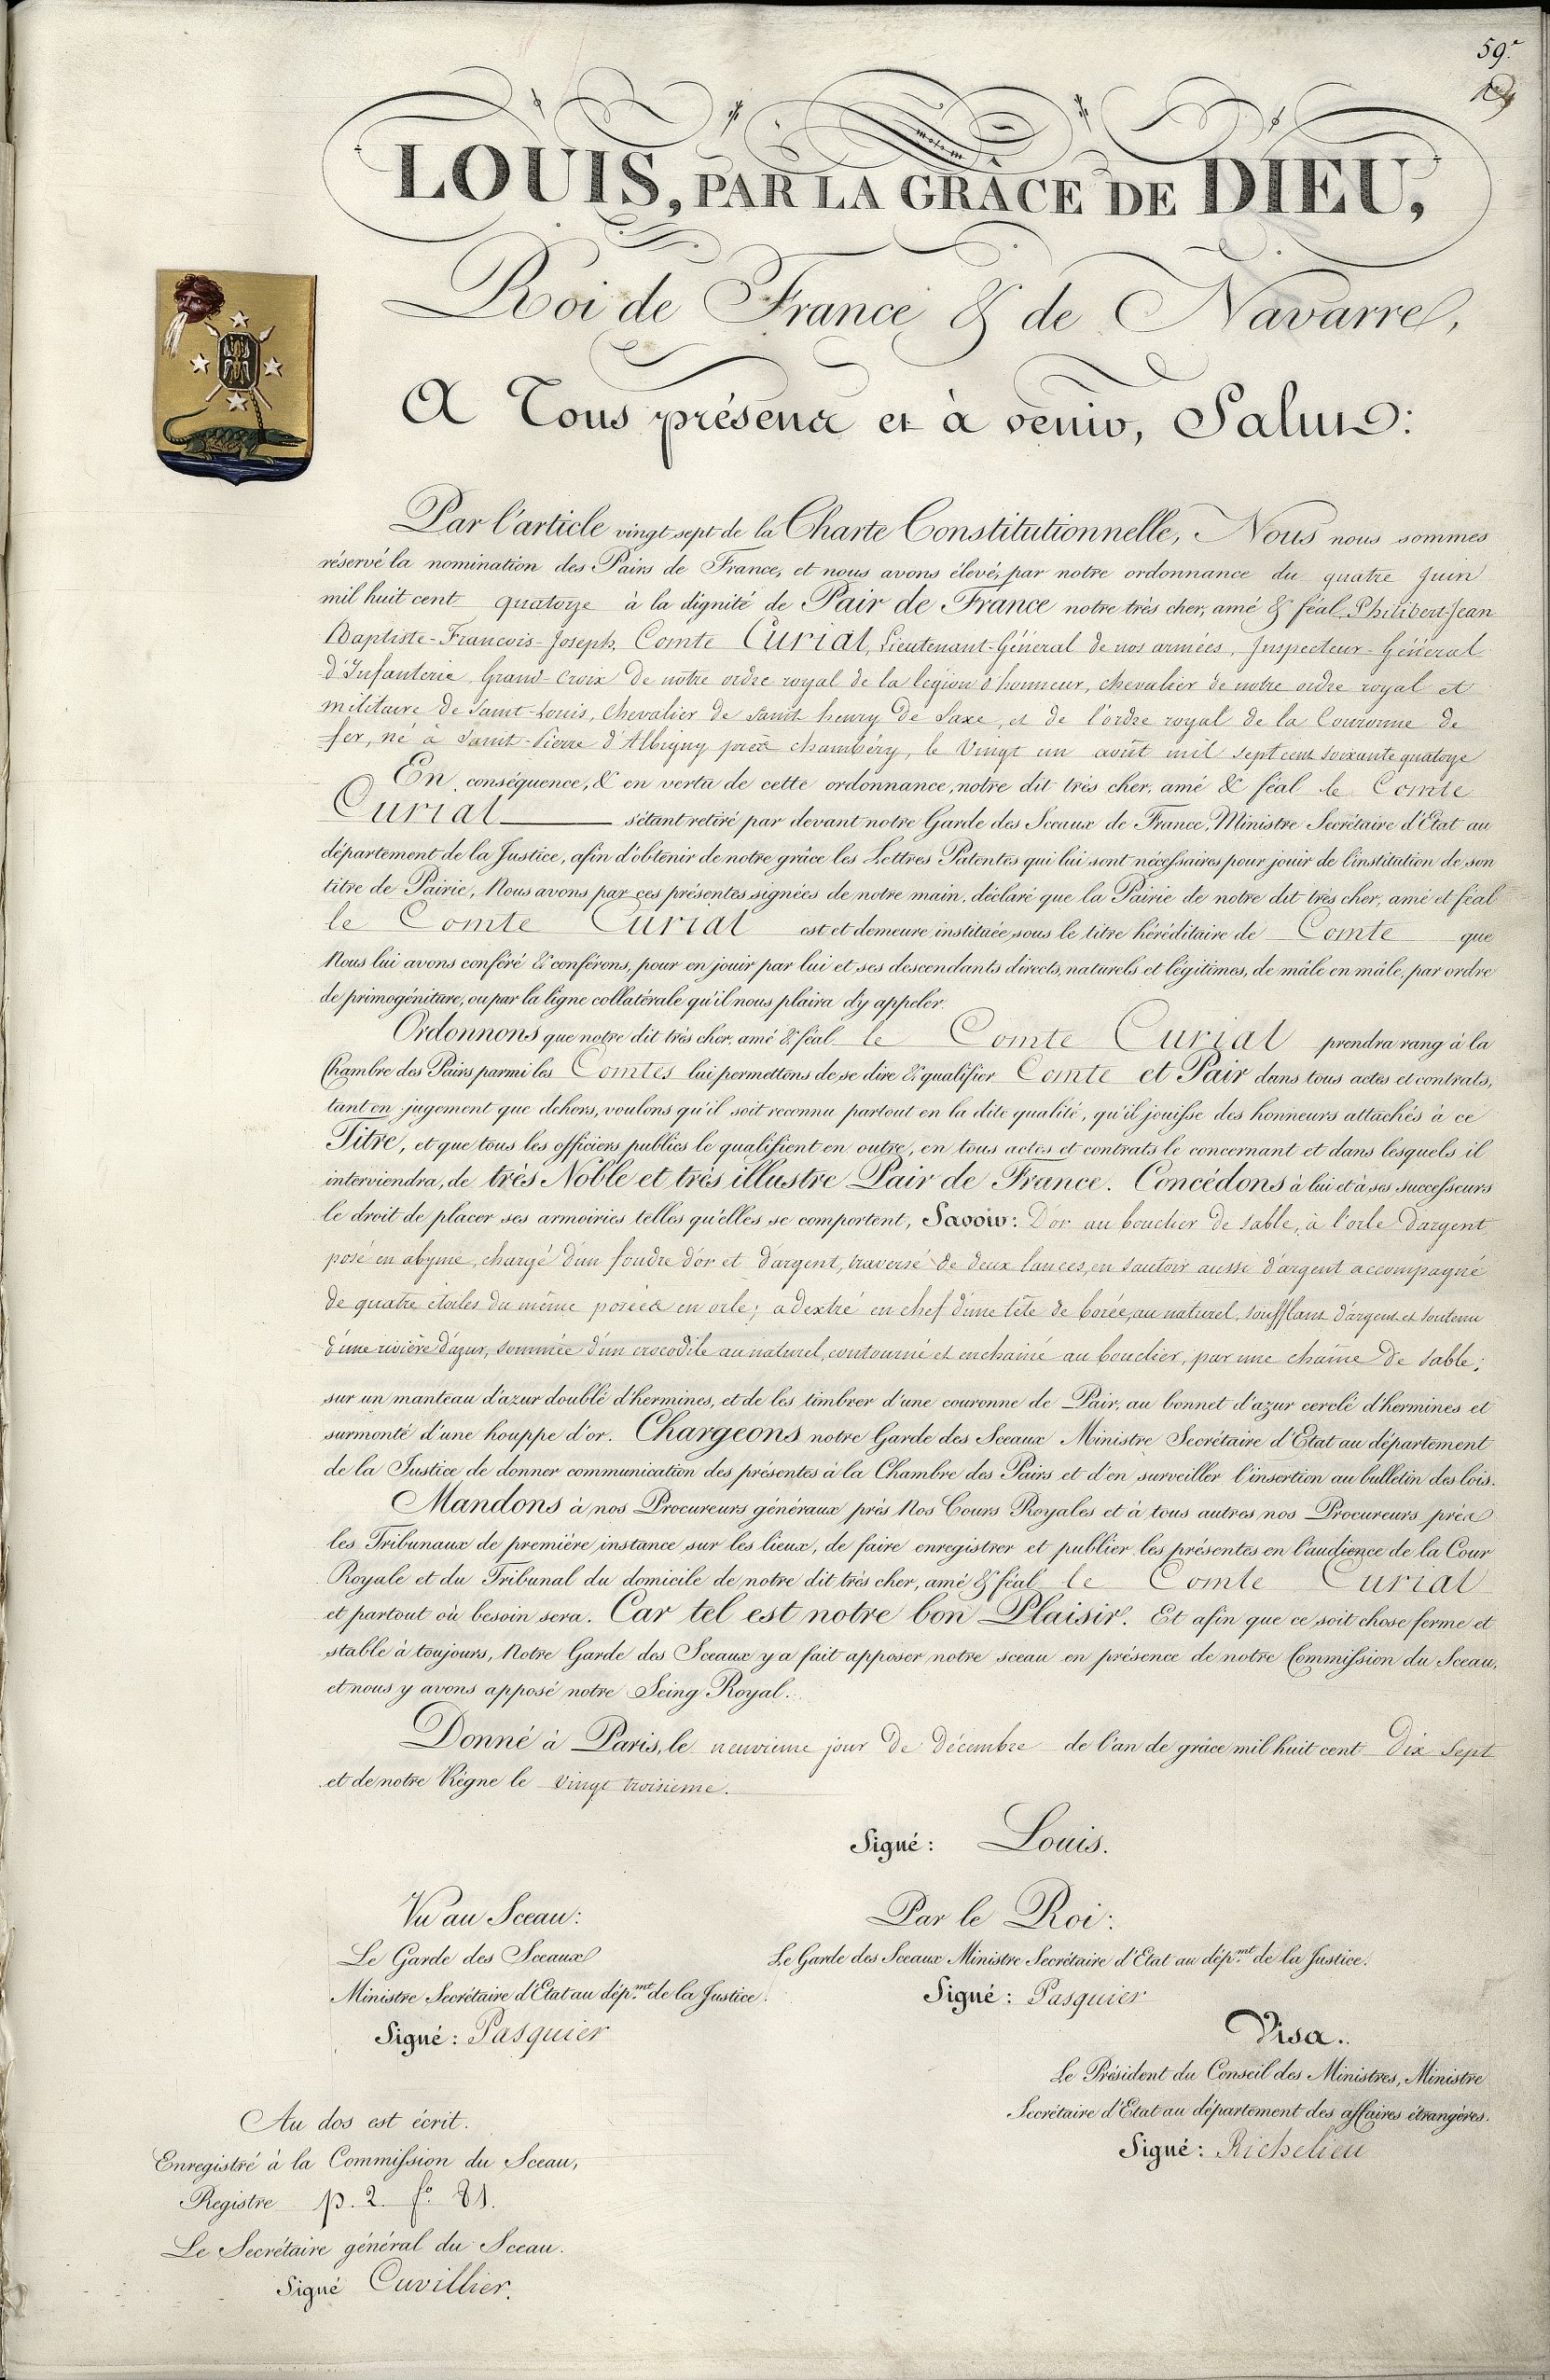 59.e
LOUIS, PAR LA GRÂCE DE DIEU,
Roi de France & de Navarre,
A Tous présens et à venir, Salut:
Par l'article vingt sept de la Charte Constitutionnelle, Nous nous sommes
réservé la nomination des Pairs de France, et nous avons élevé, par notre ordonnance du quatre Juin
mil huit cent quatorze à la dignité de Pair de France notre très cher, amé & féal Philibert-Jean
Baptiste-Francois-Joseph, Comte Curial, Lieutenant-Général de nos armées, Inspecteur-Général
d'Infanterie, Grand-Croix de notre ordre royal de la légion d'honneur, chevalier de notre ordre royal et
militaire de Saint-Louis, Chevalier de Saint henry de Saxe, et de l'ordre royal de la Couronne de
fer, né à Saint-Pierre d'Albigny près chambéry, le Vingt un août mil sept cent soixante quatorze
En conséquence, & en vertu de cette ordonnance, notre dit très cher, amé & féal le Comte
Curial s'étant retiré par devant notre Garde des Sceaux de France, Ministre Secrétaire d'Etat au
département de la Justice, afin d'obtenir de notre grâce les Lettres Patentes qui lui sont nécessaires pour jouir de l'institution de son
titre de Pairie, Nous avons par ces présentes signées de notre main, déclaré que la Pairie de notre dit très cher, amé et féal
le Comte Curial est et demeure instituée sous le titre héréditaire de Comte que
Nous lui avons conféré & conférons, pour en jouir par lui et ses descendants directs, naturels et légitimes, de mâle en mâle, par ordre
de primogéniture, ou par la ligne collatérale qu'il nous plaira d'y appeler.
Ordonnons que notre dit très cher, amé & féal le Comte Curial prendra rang à la
Chambre des Pairs parmi les Comtes lui permettons de se dire & qualifier Comte et Pair dans tous actes et contrats,
tant en jugement que dehors, voulons qu'il soit reconnu partout en la dite qualité, qu'il jouisse des honneurs attachés à ce
Titre, et que tous les officiers publics le qualifient en outre, en tous actes et contrats le concernant et dans lesquels il
interviendra, de très Noble et très illustre Pair de France. Concédons à lui et à ses successeurs
le droit de placer ses armoiries telles qu'elles se comportent, Savoir: D'or au bouclier de sable, à l'orle d'argent
posé en abyme, chargé d'un foudre d'or et d'argent, traversé de deux lances, en sautoir aussi d'argent accompagné
de quatre étoiles du même posées en orle; adextré en chef d'une tête de borée, au naturel, soufflant d'argent et soutenu
d'une rivière d'azur, sommée d'un crocodile au naturel, contourné et enchaîné au bouclier, par une chaîne de sable;
sur un manteau d'azur doublé d'hermines, et de les timbrer d'une couronne de Pair, au bonnet d'azur cerclé d'hermines et
surmonté d'une houppe d'or. Chargeons notre Garde des Sceaux Ministre Secrétaire d'Etat au département
de la Justice de donner communication des présentes à la Chambre des Pairs et d'en surveiller l'insertion au bulletin des lois.
Mandons à nos Procureurs généraux près Nos Cours Royales et à tous autres nos Procureurs près
les Tribunaux de première instance sur les lieux, de faire enregistrer et publier les présentes en l'audience de la Cour
Royale et du Tribunal du domicile de notre dit très cher, amé & féal le Comte Curial
et partout où besoin sera. Car tel est notre bon Plaisir. Et afin que ce soit chose ferme et
stable à toujours, Notre Garde des Sceaux y a fait apposer notre sceau en présence de notre Commission du Sceau,
et nous y avons apposé notre Seing Royal.
Donné à Paris, le neuvieme jour de décembre de l'an de grâce mil huit cent Dix Sept
et de notre Règne le vingt troisieme.
Signé: Louis.
Vu au Sceau:
Le Garde des Sceaux
Ministre Secrétaire d'Etat au dép.mt de la Justice.
Signé: Pasquier
Par le Roi:
Le Garde des Sceaux Ministre Secrétaire d'Etat au dép.mt de la Justice.
Signé: Pasquier
Visa.
Le Président du Conseil des Ministres, Ministre
Secrétaire d'Etat au département des affaires étrangères.
Signé: Richelieu
Au dos est écrit.
Enregistré à la Commission du Sceau,
Registre p. 2 fo. 81.
Le Secrétaire général du Sceau.
Signé Cuvillier.